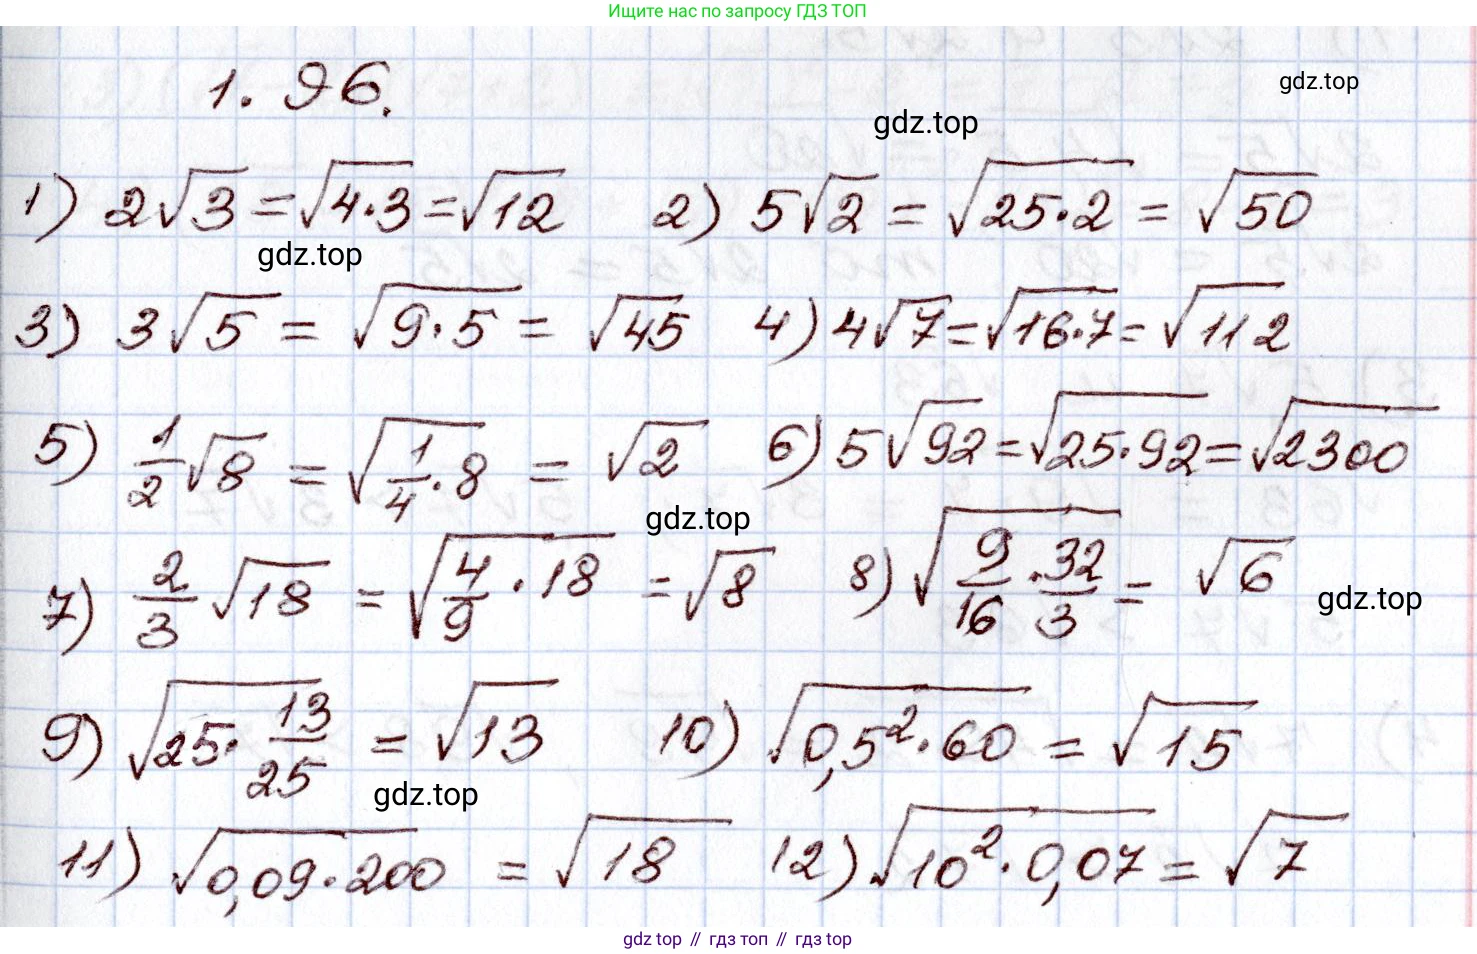 Ищите нас по запросу ГДЗ ТОП
1.96.
gdz.top
gdz.top
1) 2√3 = √(4·3) = √12 2) 5√2 = √(25·2) = √50
gdz.top
3) 3√5 = √(9·5) = √45 4) 4√7 = √(16·7) = √112
5) 1/2√8 = √(1/4·8) = √2 6) 5√92 = √(25·92) = √2300
gdz.top
7) 2/3√18 = √(4/9·18) = √8 8) √(9/16·32/3) = √6
gdz.top
9) √(25·13/25) = √13 10) √(0,5²·60) = √15
gdz.top
11) √(0,09·200) = √18 12) √(10²·0,07) = √7
gdz top // гдз топ // гдз top